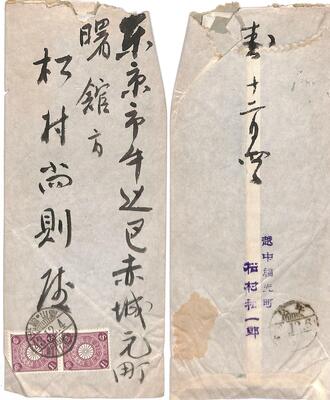 東京市牛込区赤城元町
曙舘方
松村尚則様
十二月四日
越中福光町
松村
一郎